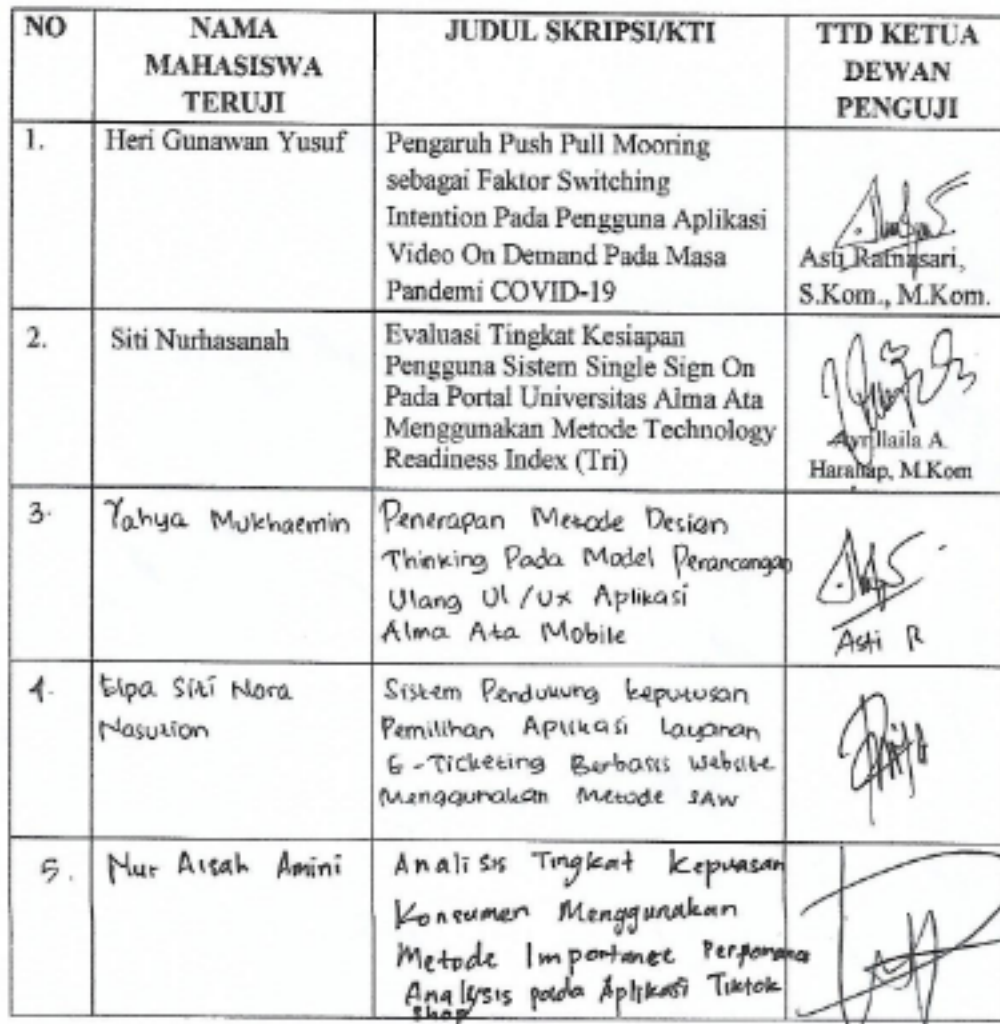 NO
NAMA MAHASISWA TERUJI
JUDUL SKRIPSI/KTI
TTD KETUA DEWAN PENGUJI
1.
Heri Gunawan Yusuf
Pengaruh Push Pull Mooring
sebagai Faktor Switching
Intention Pada Pengguna Aplikasi
Video On Demand Pada Masa
Pandemi COVID-19
Asti Ratnasari,
S.Kom., M.Kom.
2.
Siti Nurhasanah
Evaluasi Tingkat Kesiapan
Pengguna Sistem Single Sign On
Pada Portal Universitas Alma Ata
Menggunakan Metode Technology
Readiness Index (Tri)
Ayrillaila A.
Harahap, M.Kom
3.
Yahya Mukhaemin
Penerapan Metode Design
Thinking Pada Model Perancangan
Ulang UI/UX Aplikasi
Alma Ata Mobile
Asti R
4.
Elpa Siti Nora
Nasution
Sistem Pendukung keputusan
Pemilihan Aplikasi Layanan
E-Ticketing Berbasis website
Menggunakan Metode SAW
5.
Nur Aisah Amini
Analisis Tingkat Kepuasan
Konsumen Menggunakan
Metode Importance Performance
Analysis pada Aplikasi Tiktok
Shop